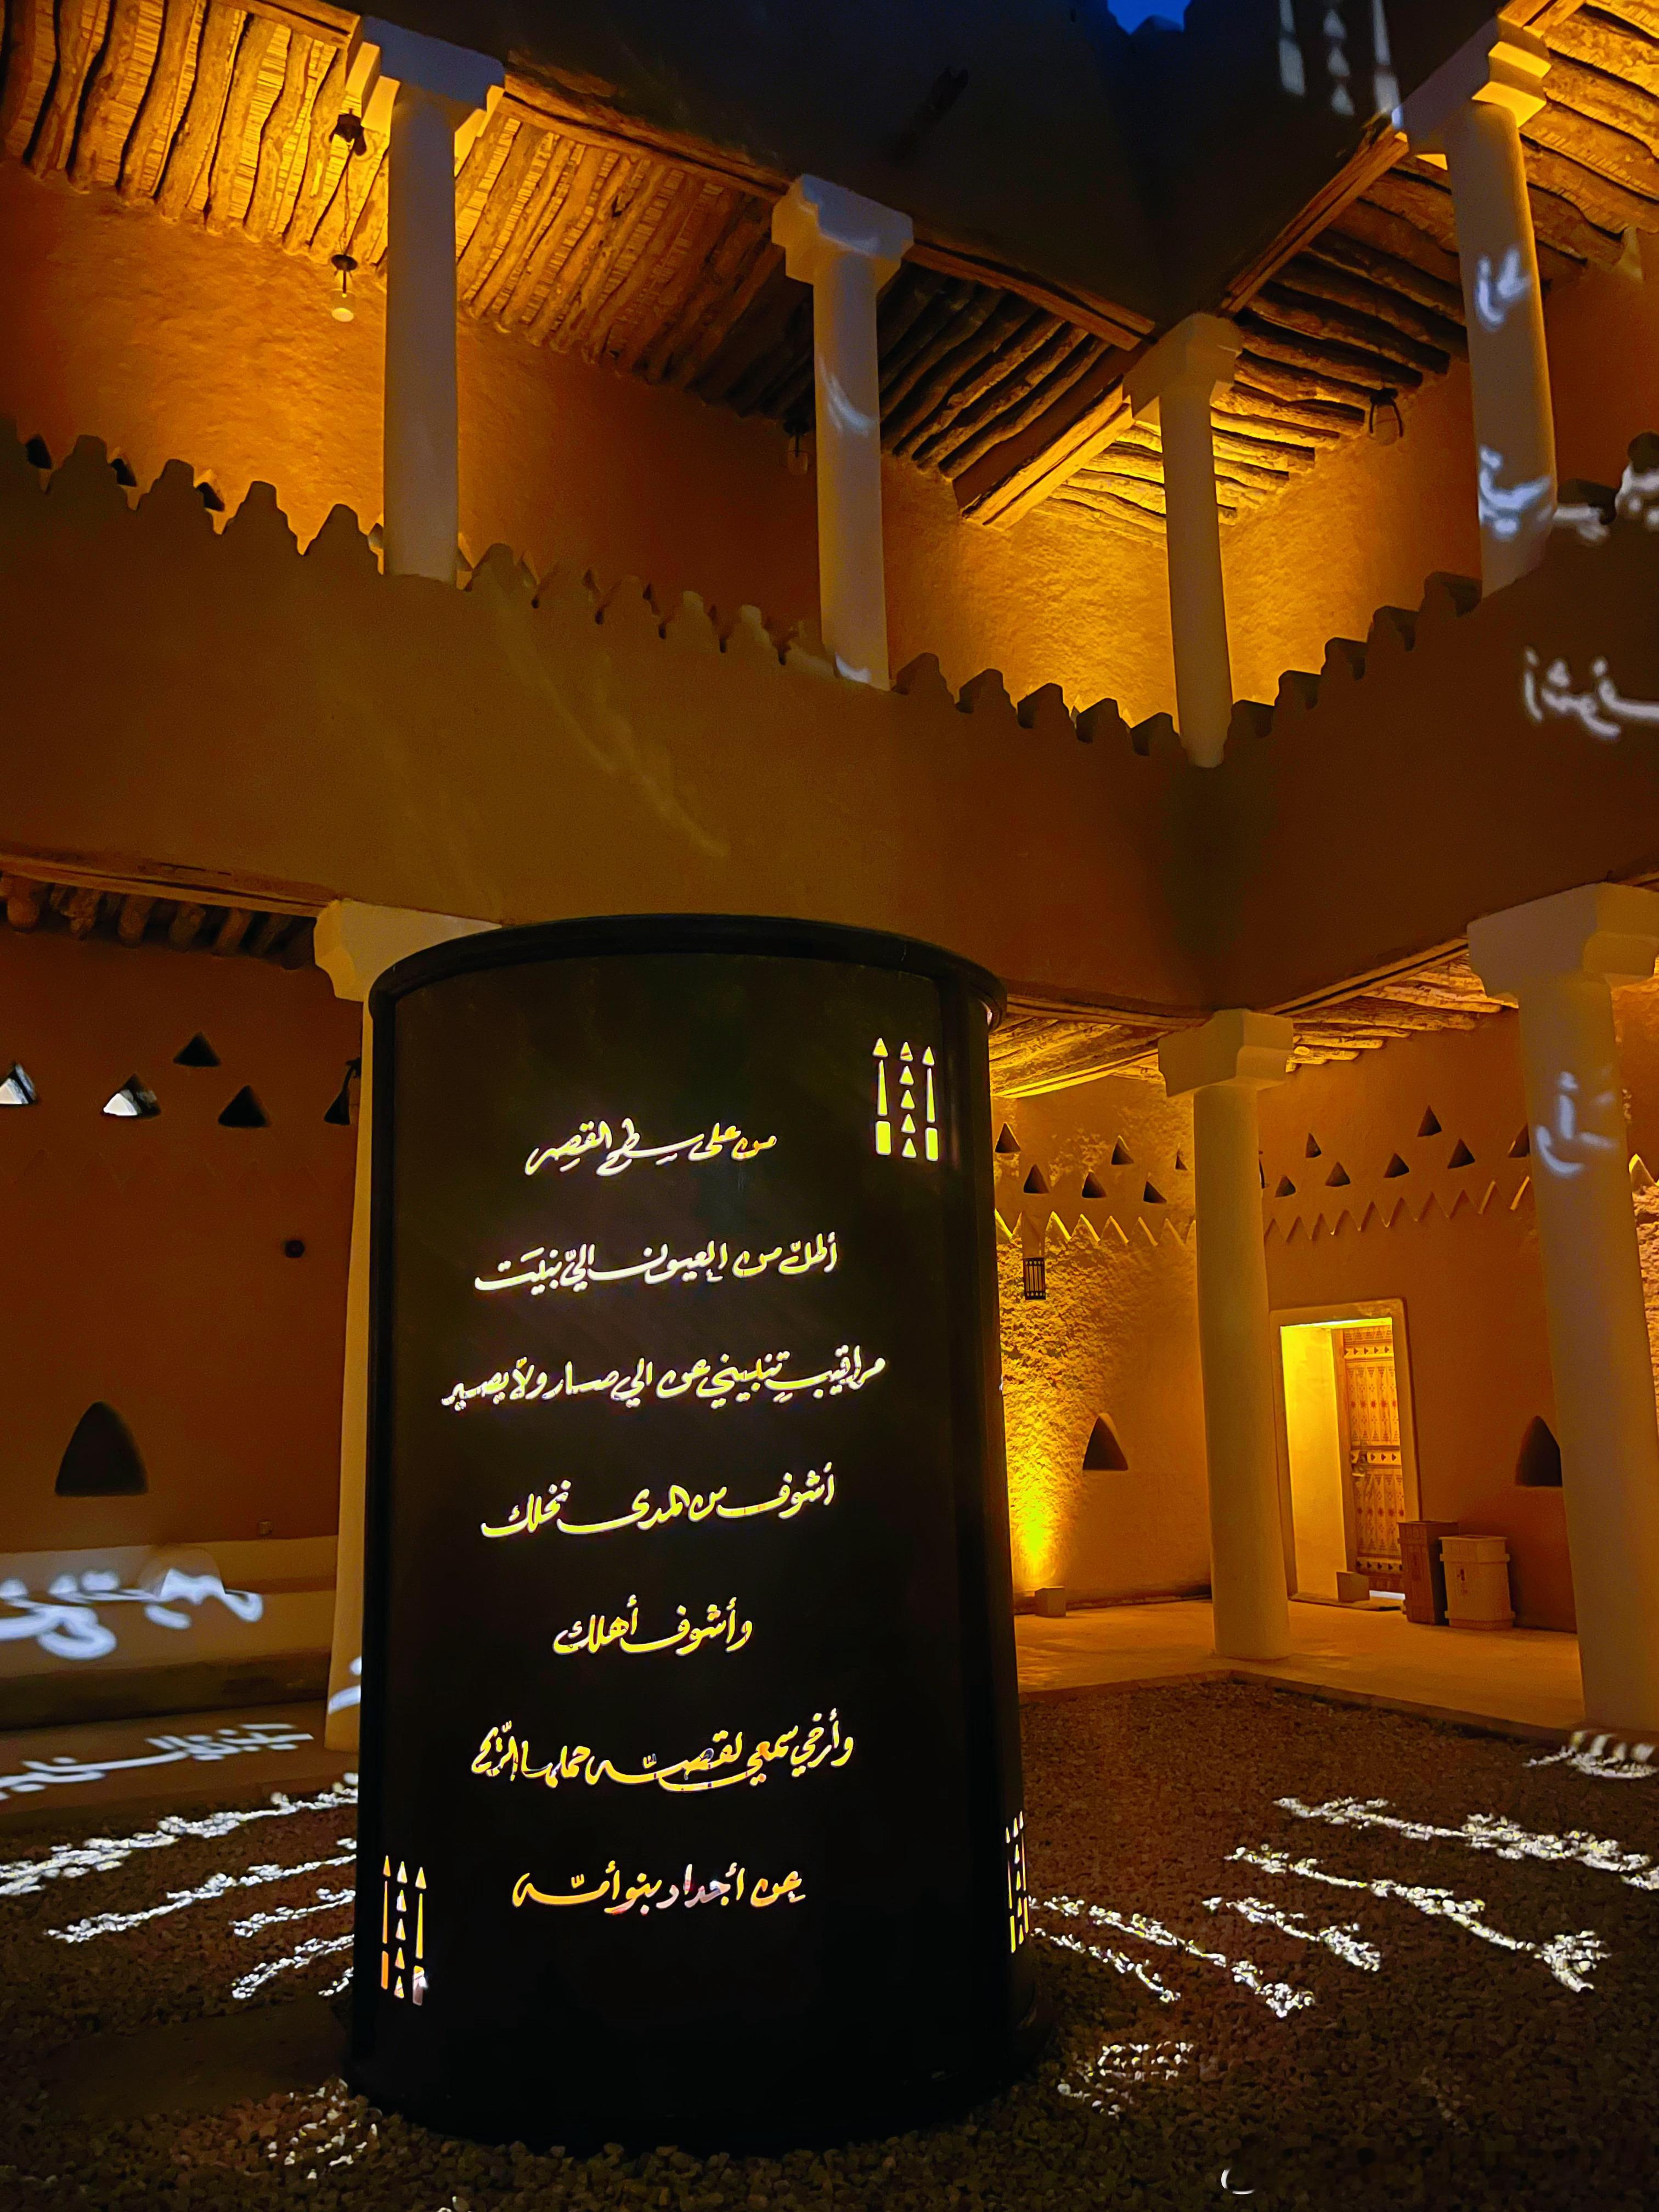 من على سطح القصر
أطلّ من العيون اليّ بنيَت
مراقيبٍ تنبيني عن الي صار ولاّ يصير
أشوف من المدى نخلك
وأشوف أهلك
وأرخي سمعي لقصّه حملها الرّيح
عن أجداد بنو أمّه
أشوف